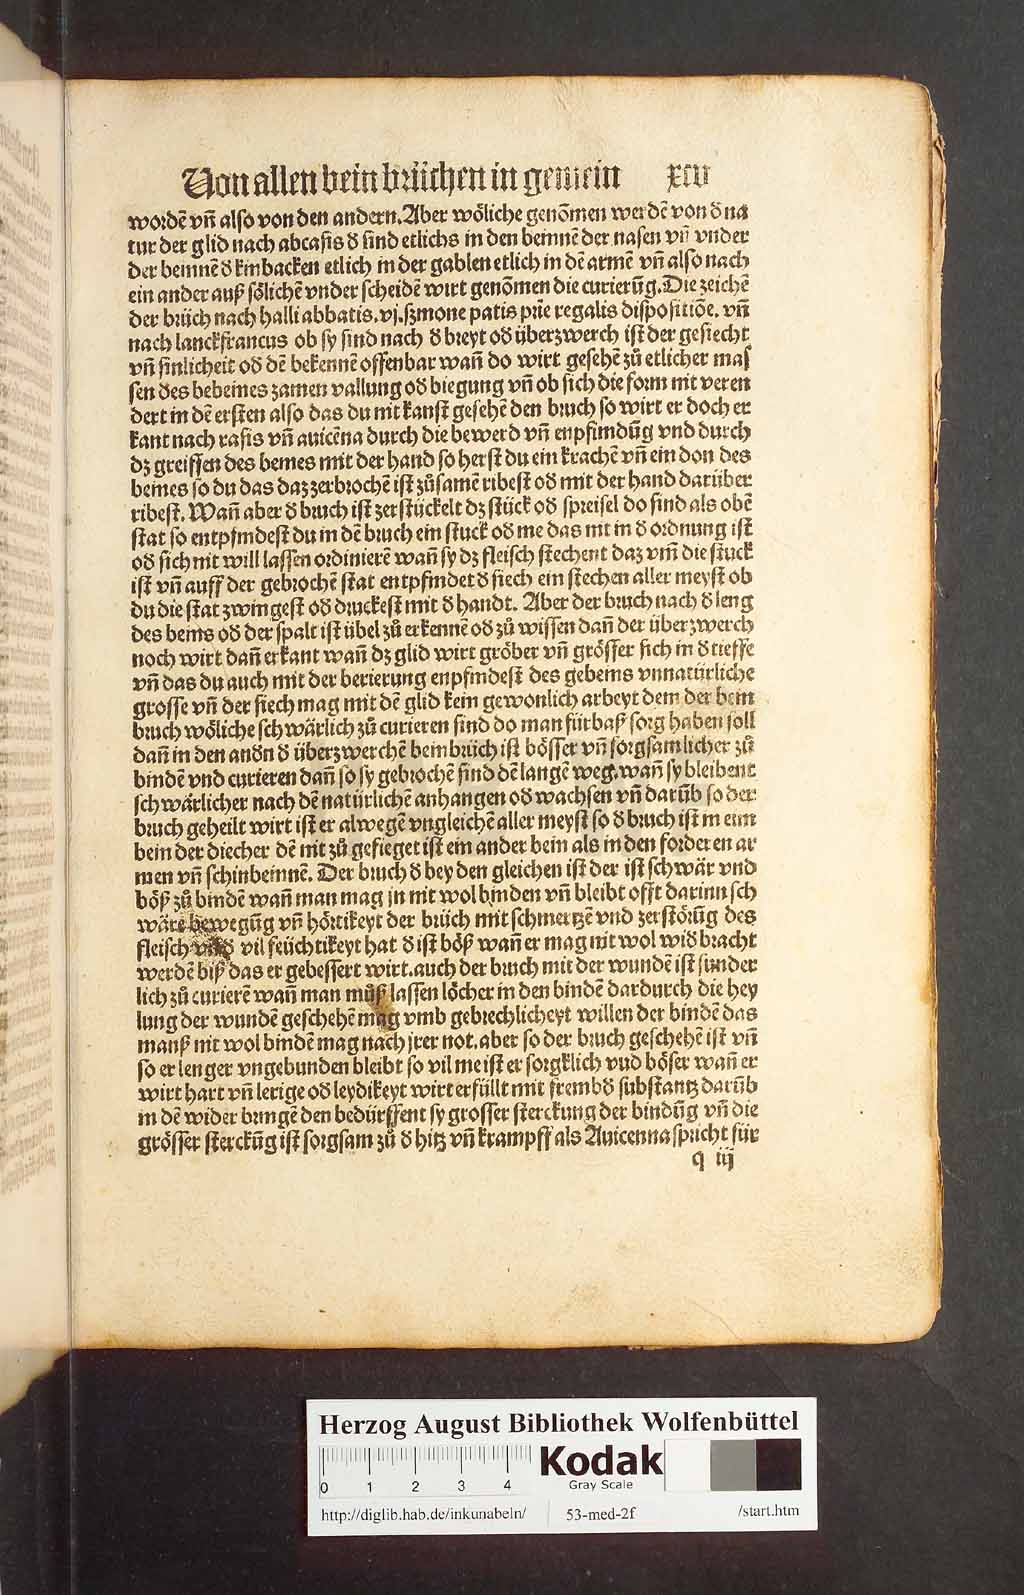 Von allen bein brüchen in gemein xcv
wordē vñ also von den andern. Aber wöliche genōmen werdē von d na
tur der glid nach abcasis d sind etlichs in den beinnē der nasen vñ vnder
der beinnē d kinbacken etlich in der gablen etlich in dē armē vñ also nach
ein ander auß sölichē vnder scheidē wirt genōmen die curierūg. Die zeichē
der brüch nach halli abbatis. vj. sʒmone patis prīe regalis dispositiōe. vñ
nach lanckfrancus ob sy sind nach d breyt od überzwerch ist der gesiecht
vñ sinlicheit od dē bekennē offenbar wañ do wirt gesehē zů etlicher mas
sen des bebeines zamen vallung od biegung vñ ob sich die form nit veren
dert in dē ersten also das du nit kanst gesehē den bruch so wirt er doch er
kant nach rasis vñ auicēna durch die bewerd vñ enpfindūg vnd durch
dz greiffen des beines mit der hand so herst du ein krachē vñ ein don des
beines so du das daz zerbrochē ist zůsamē ribest od mit der hand darüber
ribest. Wañ aber d bruch ist zerstückelt dz stück od spreisel do sind als obē
stat so entpfindest du in dē bruch ein stuck od me das nit in d ordnung ist
od sich nit will lassen ordinierē wañ sy dz fleisch stechent daz vm̄ die stuck
ist vñ auff der gebrochē stat entpfindet d siech ein stechen aller meyst ob
du die stat zwingest od druckest mit d handt. Aber der bruch nach d leng
des beins od der spalt ist übel zů erkennē od zů wissen dañ der überzwerch
noch wirt dañ erkant wañ dz glid wirt gröber vñ grösser sich in d tieffe
vñ das du auch mit der berierung enpfindest des gebeins vnnatürliche
grosse vñ der siech mag mit dē glid kein gewonlich arbeyt dem der bein
bruch wöliche schwärlich zů curieren sind do man fürbaß sorg haben soll
dañ in den andn d überzwerchē beinbrüch ist bösser vñ sorgsamlicher zů
bindē vnd curieren dañ so sy gebrochē sind dē langē weg. wañ sy bleibent
schwärlicher nach dē natürlichē anhangen od wachsen vñ darūb so der
bruch geheilt wirt ist er alwegē vngleichē aller meyst so d bruch ist in eim
bein der diecher dē nit zů gefieget ist ein ander bein als in den forderen ar
men vñ schinbeinnē. Der bruch d bey den gleichen ist der ist schwär vnd
böß zů bindē wañ man mag jn nit wol binden vñ bleibt offt darinn sch
wäre bewegūg vñ hörtikeyt der brüch mit schmertzē vnd zerstörūg des
fleisch vnd vil feüchtikeyt hat d ist böß wañ er mag nit wol wid bracht
werdē biß das er gebessert wirt. auch der bruch mit der wundē ist sunder
lich zů curierē wañ man můß lassen löcher in den bindē dardurch die hey
lung der wundē geschehē mag vmb gebrechlicheyt willen der bindē das
manß nit wol bindē mag nach jrer not. aber so der bruch geschehē ist vñ
so er lenger vngebunden bleibt so vil me ist er sorgklich vnd böser wañ er
wirt hart vñ lerige od leydikeyt wirt erfüllt mit frembd substantz darūb
in dē wider bringē den bedürffent sy grosser sterckung der bindūg vñ die
grösser sterckūg ist sorgsam zů d hitz vñ krampff als Auicenna spricht für
q iij
Herzog August Bibliothek Wolfenbüttel
0 1 2 3 4 Kodak
Gray Scale
http://diglib.hab.de/inkunabeln/ 53-med-2f /start.htm